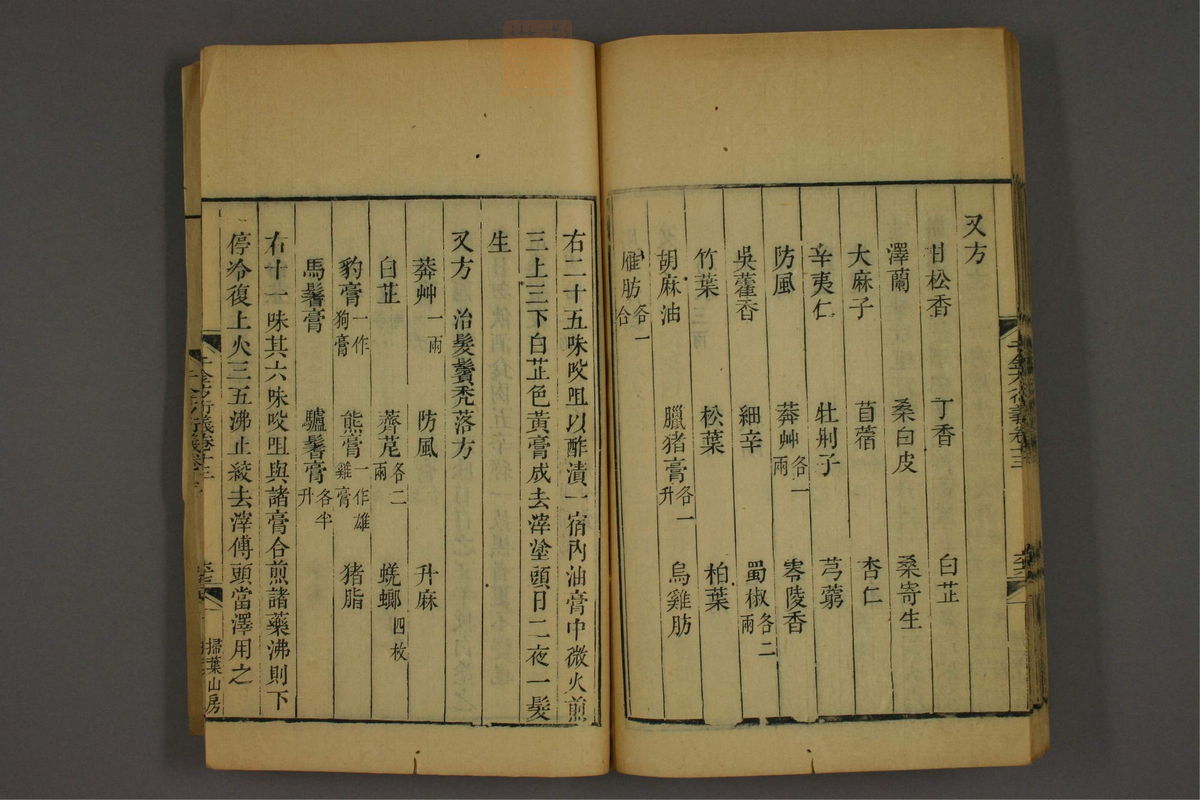 又方
甘松香 丁香 白芷
澤蘭 桑白皮 桑寄生
大麻子 苜蓿 杏仁
辛夷仁 牡荆子 芎藭
防風 莽艸各一兩 零陵香
吳藿香 細辛 蜀椒各二兩
竹葉 松葉 柏葉
胡麻油 臘猪膏各一升 烏雞肪
雁肪各一合
右二十五味㕮咀以酢漬一宿內油膏中微火煎
三上三下白芷色黃膏成去滓塗頭日二夜一髮
生
又方 治髮鬢秃落方
莽艸一兩 防風 升麻
白芷 薺苨各二兩 蜣螂四枚
豹膏一作狗膏 熊膏一作雄雞膏 猪脂
馬鬐膏 驢鬐膏各半升
右十一味其六味㕮咀與諸膏合煎諸藥沸則下
停冷復上火三五沸止絞去滓傅頭當澤用之
千金方衍義卷十三
掃葉山房